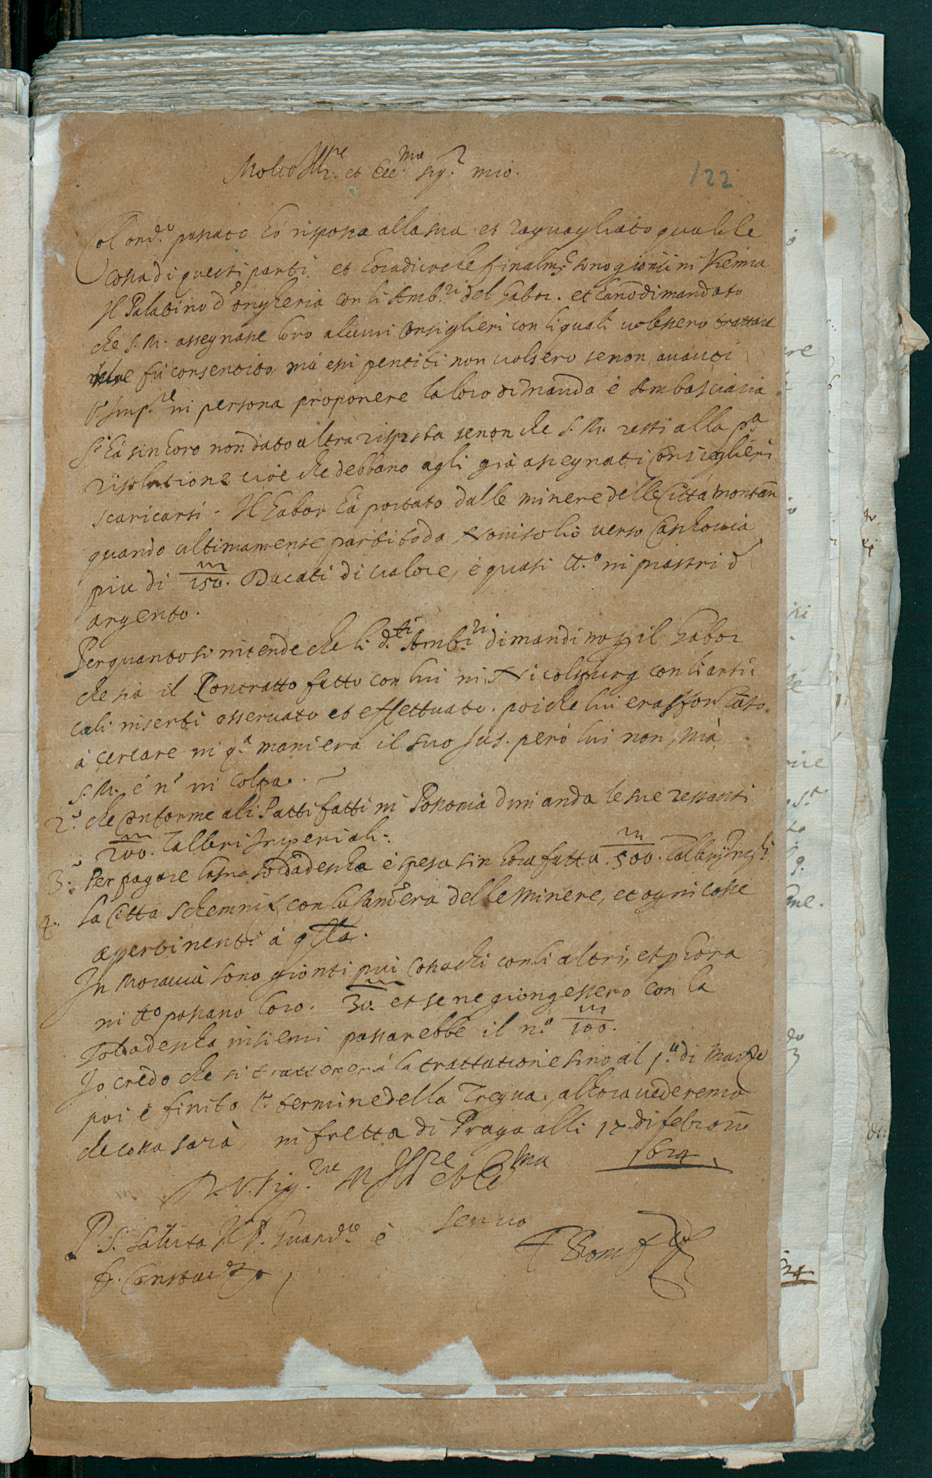 Molto Ill.re et Ecc.mo Sig.r mio.
122
Col ord.o passato hò risposta alla sua et raguagliato qualche
cosa di questi parti. et hora dico che finalm.te sono gionti in Vienna
Il Palatino d'Ongheria con li Amb.ri del Gabor. et hano dimandato
che S. M. assegnasse loro alcuni Consiglieri con li quali volessero trattare
fù consentito mà essi pentiti non volsero se non avanti
l'Imp.re in persona proponere la loro dimanda è Ambasciaria
S'hà sin horo non dato altra risposta se non che S. M. resti alla p.a
risolutione cioè che debbano agli già assegnati Consiglieri
scaricarsi. Il Gabor hà portato dalle minere delle Città montan
quando ultimamente partito da Novisolio verso Cashovia
piu di 150. Ducati di valore, è quasi tt.o in piastri d'
argento.
Per quanto si intende che li d.ti Amb.ri dimandino il Gabor
che sia il Contratto fatto con lui in Nicolspurg con li arti
cali inserti osservato et effettuato. poiche lui era sfonzato
à cercare in q.a maniera il suo Jus. però lui non, mà
S. M. é n' in colpa.
2.o che Conforme ali Patti fatti in Possonia dimanda le sue restanti
200. Talleri Imperiali.
3. Per pagare la sua soldadescha è spesa sin hora fatta. 300. Talleri
4. La Citta Schemniz, con la Camera delle Minere, et ogni cosse
apertinenti à q.lla.
In Moravia sono gionti piu Cosachi con li altri, et p hora
in tt.o possano loro. 30. et se ne giongessero con la
soldadescha insiemi passarebbe il n.o 100.
Io credo che si trattenerà la trattatione sino al p.o di Marzo
poi è finito l. termine della Tregua. allora vederemo
che cosa sarà in fretta di Praga alli 17 di febraro
1624.
D. V. Sig.ria M Ill.re et Ecc.ma
servo
P. S. Saluta Il P. Guard.no è
fr.